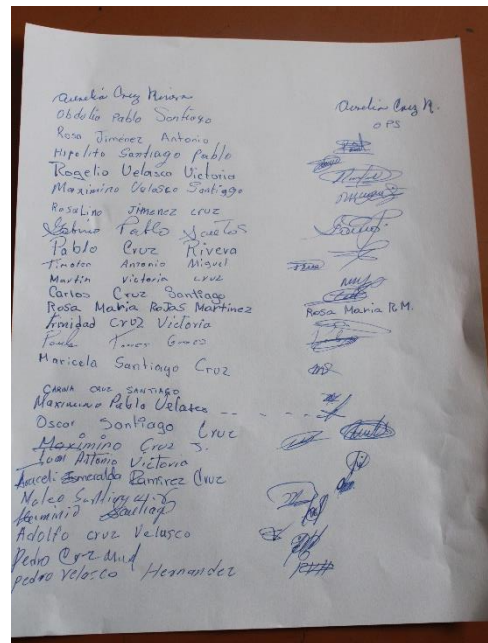 Aurelia Cruz Rivera Aurelia Cruz R.
Obdolio Pablo Santiago OPS
Rosa Jiménez Antonio
Hipolito Santiago Pablo
Rogelio Velasco Victoria
Maximino Velasco Santiago
Rosalino Jimenez cruz
Pablo Santos
Pablo Cruz Rivera
Timoteo Antonio Miguel
Martin Victoria cruz
Carlos Cruz Santiago
Rosa Maria Rojas Martinez Rosa Maria R.M.
trinidad Cruz Victoria
Maricela Santiago Cruz
CARINA CRUZ SANTIAGO
Maximino Pablo Velasco
Oscar Santiago Cruz
Maximino Cruz S.
Juan Antonio Victoria
Araceli Esmeralda Ramirez Cruz
Santiago
Adolfo cruz Velasco
Pedro Cruz
pedro velasco Hernandez